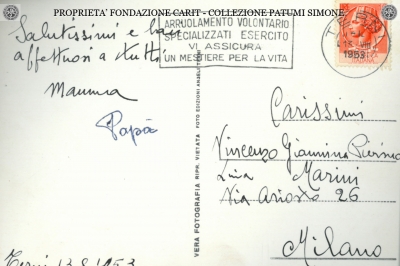 PROPRIETA' FONDAZIONE CARIT - COLLEZIONE PATUMI SIMONE
ARRUOLAMENTO VOLONTARIO
SPECIALIZZATI ESERCITO
VI ASSICURA
UN MESTIERE PER LA VITA
TERNI
1953
Salutissimi e baci
affettuosi a tutti
Mamma
Papà
Terni 13.8.1953
VERA FOTOGRAFIA RIPR. VIETATA
Carissimi
Vincenzo Giannina Pierina
Lina Marini
Via Ariosto 26
Milano